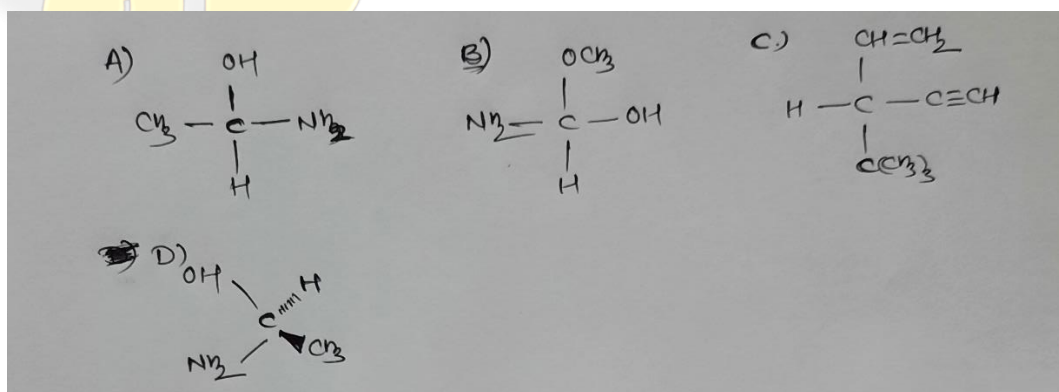 A) OH
CH3 - C - NH2
H
B) OCH3
NH2 - C - OH
H
C.) CH=CH2
H - C - C≡CH
C(CH3)3
D)
OH H
C
NH2 CH3